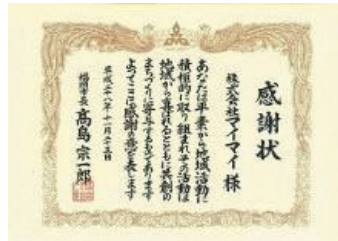 感謝状
株式会社マイマイ 様
あなたは平素から地域活動に
積極的に取り組まれその活動は
地域から喜ばれるとともに共創の
まちづくりに寄与するものであります
よってここに感謝の意を表します
平成二十八年十一月二十五日
福岡市長 髙島 宗一郎